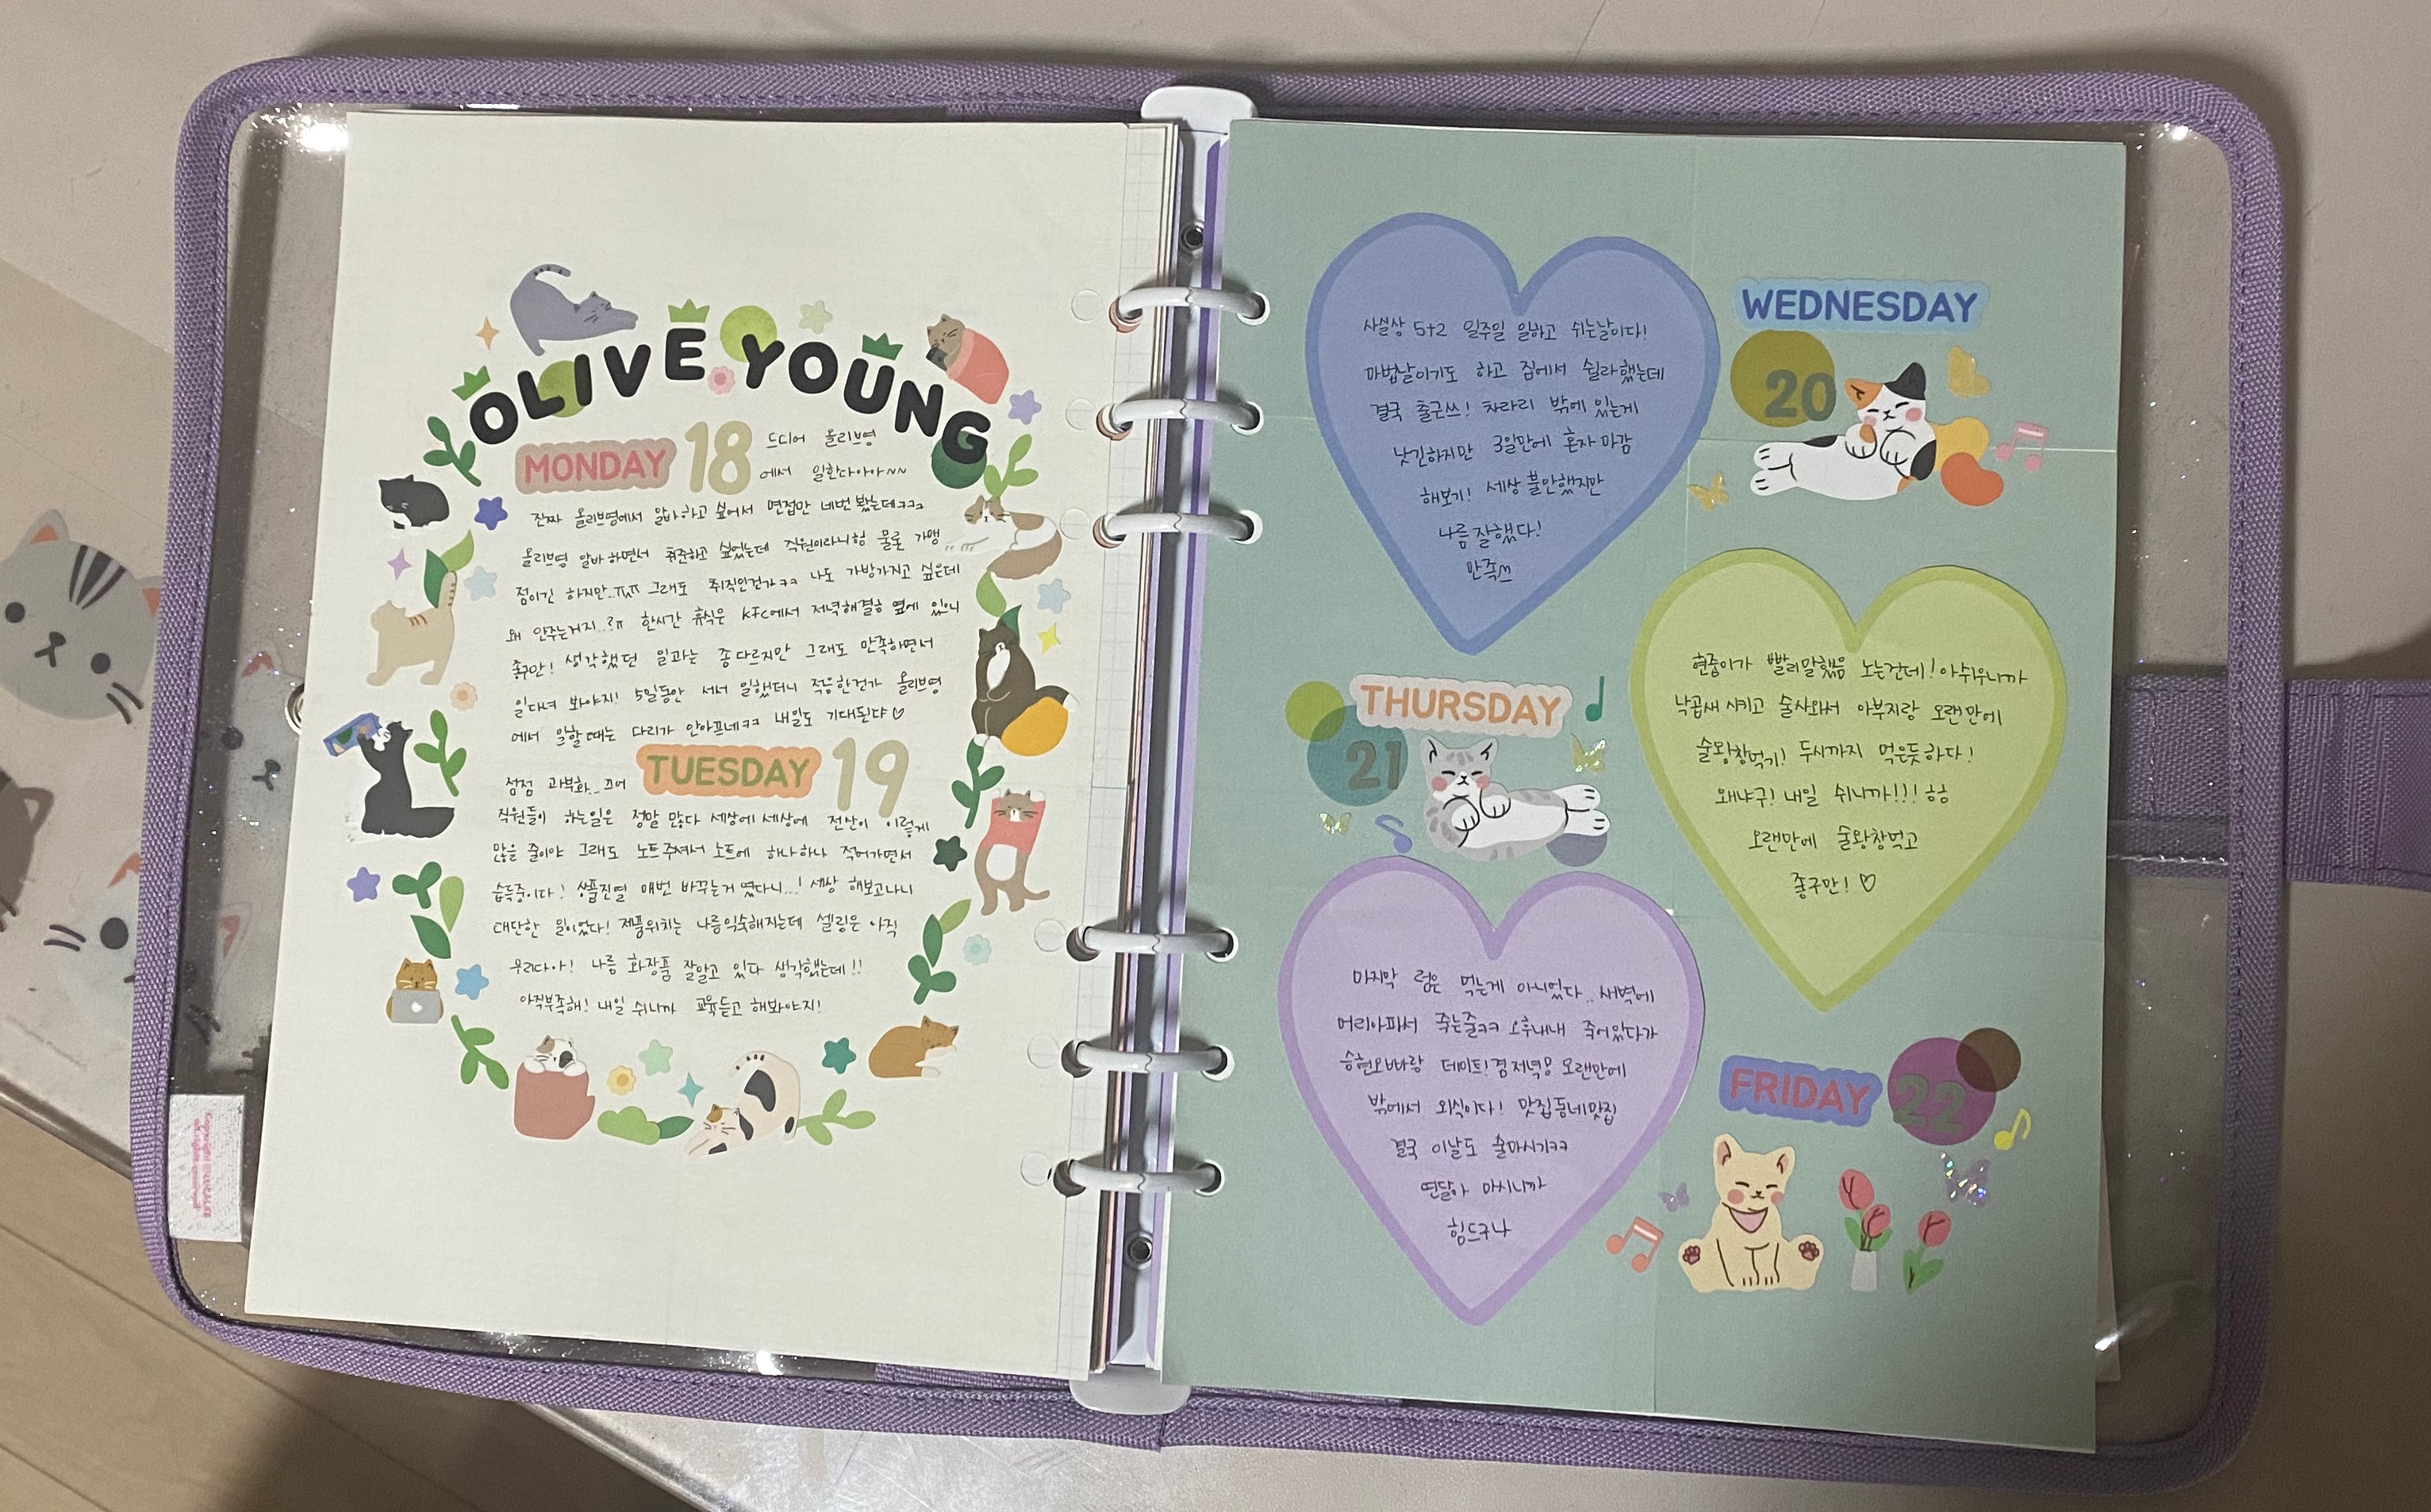 OLIVE YOUNG
MONDAY 18 드디어 올리브영
에서 일한다아아~~
진짜 올리브영에서 알바하고 싶어서 면접만 네번 봤는데ㅋㅋㅋ
올리브영 알바하면서 취준하고 싶었는데 직원이라니헝 물론 가맹
점이긴 하지만..ㅠㅠ 그래도 취직인건가ㅋㅋ 나도 가방가지고 싶은데
왜 안주는거지..?ㅠ 한시간 휴식은 KFC에서 저녁해결ㅎ 옆에 있으니
좋구만! 생각했던 일과는 좀 다르지만 그래도 만족하면서
일다녀 봐야지! 5일동안 서서 일했더니 적응한건가 올리브영
에서 일할 때는 다리가 안아프네ㅋㅋ 내일도 기대된다♡
TUESDAY 19
점점 과부화.. 끄어
직원들이 하는일은 정말 많다 세상에 세상에 전산이 이렇게
많을 줄이야 그래도 노트주셔서 노트에 하나하나 적어가면서
습득중이다! 상품진열 매번 바꾸는거 였다니...! 세상 해보고나니
대단한 일이었다! 제품위치는 나름익숙해지는데 셀링은 아직
무리다아! 나름 화장품 잘알고 있다 생각했는데!!
아직부족해! 내일 쉬니까 교육듣고 해봐야지!
WEDNESDAY
20
사실상 5+2 일주일 일하고 쉬는날이다!
마법날이기도 하고 집에서 쉴라했는데
결국 출근쓰! 차라리 밖에 있는게
낫긴하지만 3일만에 혼자 마감
해보기! 세상 불안했지만
나름 잘했다!
만족쓰
THURSDAY
21
현중이가 빨리말했음 노는건데! 아쉬우니까
낙곱새 시키고 술사와서 아부지랑 오랜만에
술왕창먹기! 두시까지 먹은듯하다!
왜냐구! 내일 쉬니까!!! ㅎㅎ
오랜만에 술왕창먹고
좋구만! ♡
FRIDAY
22
마지막 럼은 먹는게 아니었다.. 새벽에
머리아파서 죽는줄ㅋㅋ 오후내내 죽어있다가
승현오빠랑 데이트! 겸 저녁! 오랜만에
밖에서 외식이다! 맛집동네맛집
결국 이날도 술마시기ㅋㅋ
연달아 마시니까
힘드구나